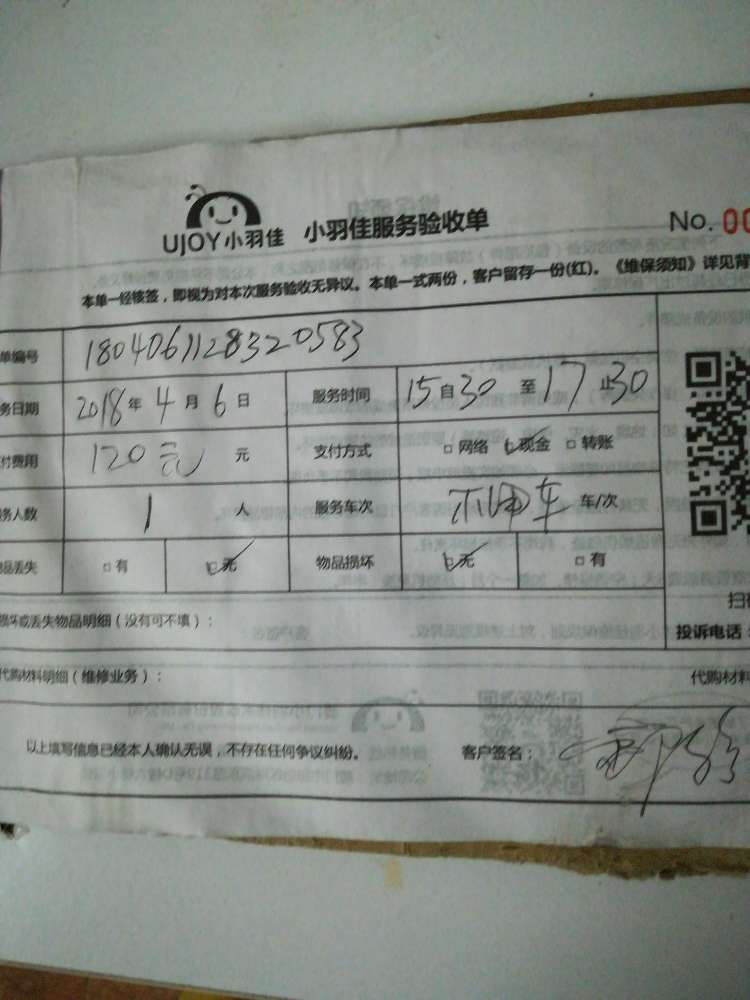 UJOY小羽佳 小羽佳服务验收单 No. 00
本单一经核签，即视为对本次服务验收无异议。本单一式两份，客户留存一份(红)。《维保须知》详见背
单编号 1804061128320583
务日期 2018年 4 月 6 日 服务时间 15 自 30 至 17 止 30
付费用 120元 元 支付方式 □ 网络 ☑ 现金 □ 转账
务人数 1 人 服务车次 车/次
品丢失 □ 有 ☑ 无 物品损坏 ☑ 无 □ 有
损坏或丢失物品明细（没有可不填）：
扫
投诉电话：
代购材料明细（维修业务）： 代购材料
以上填写信息已经本人确认无误，不存在任何争议纠纷。 客户签名：